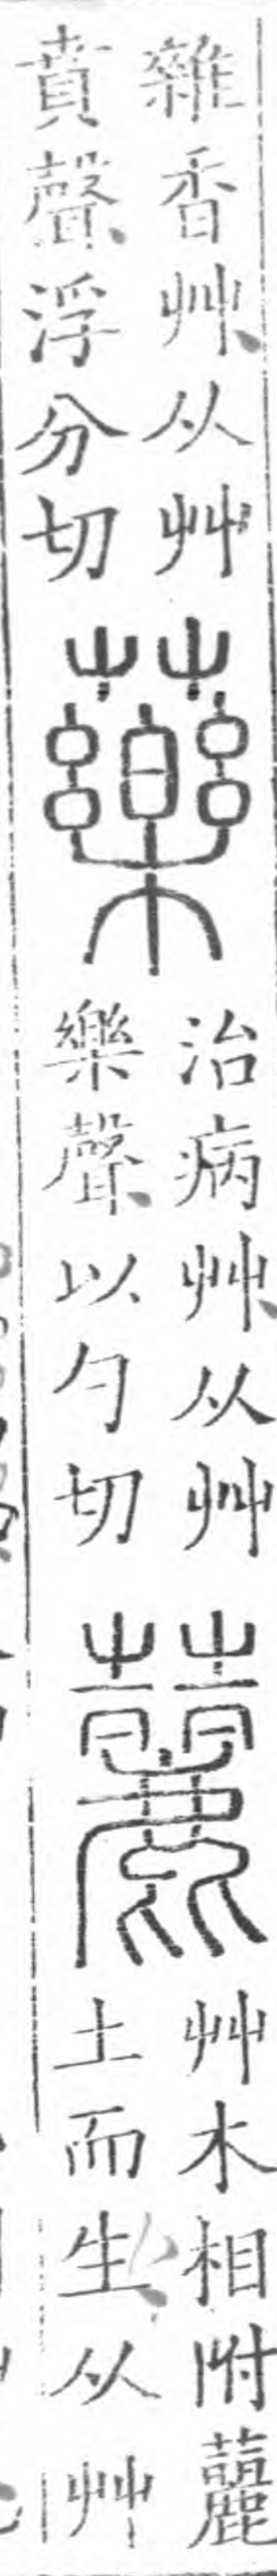 雜香艸从艸
賁聲浮分切
藥
治病艸从艸
樂聲以勺切
䕻
艸木相附䕻
土而生从艸